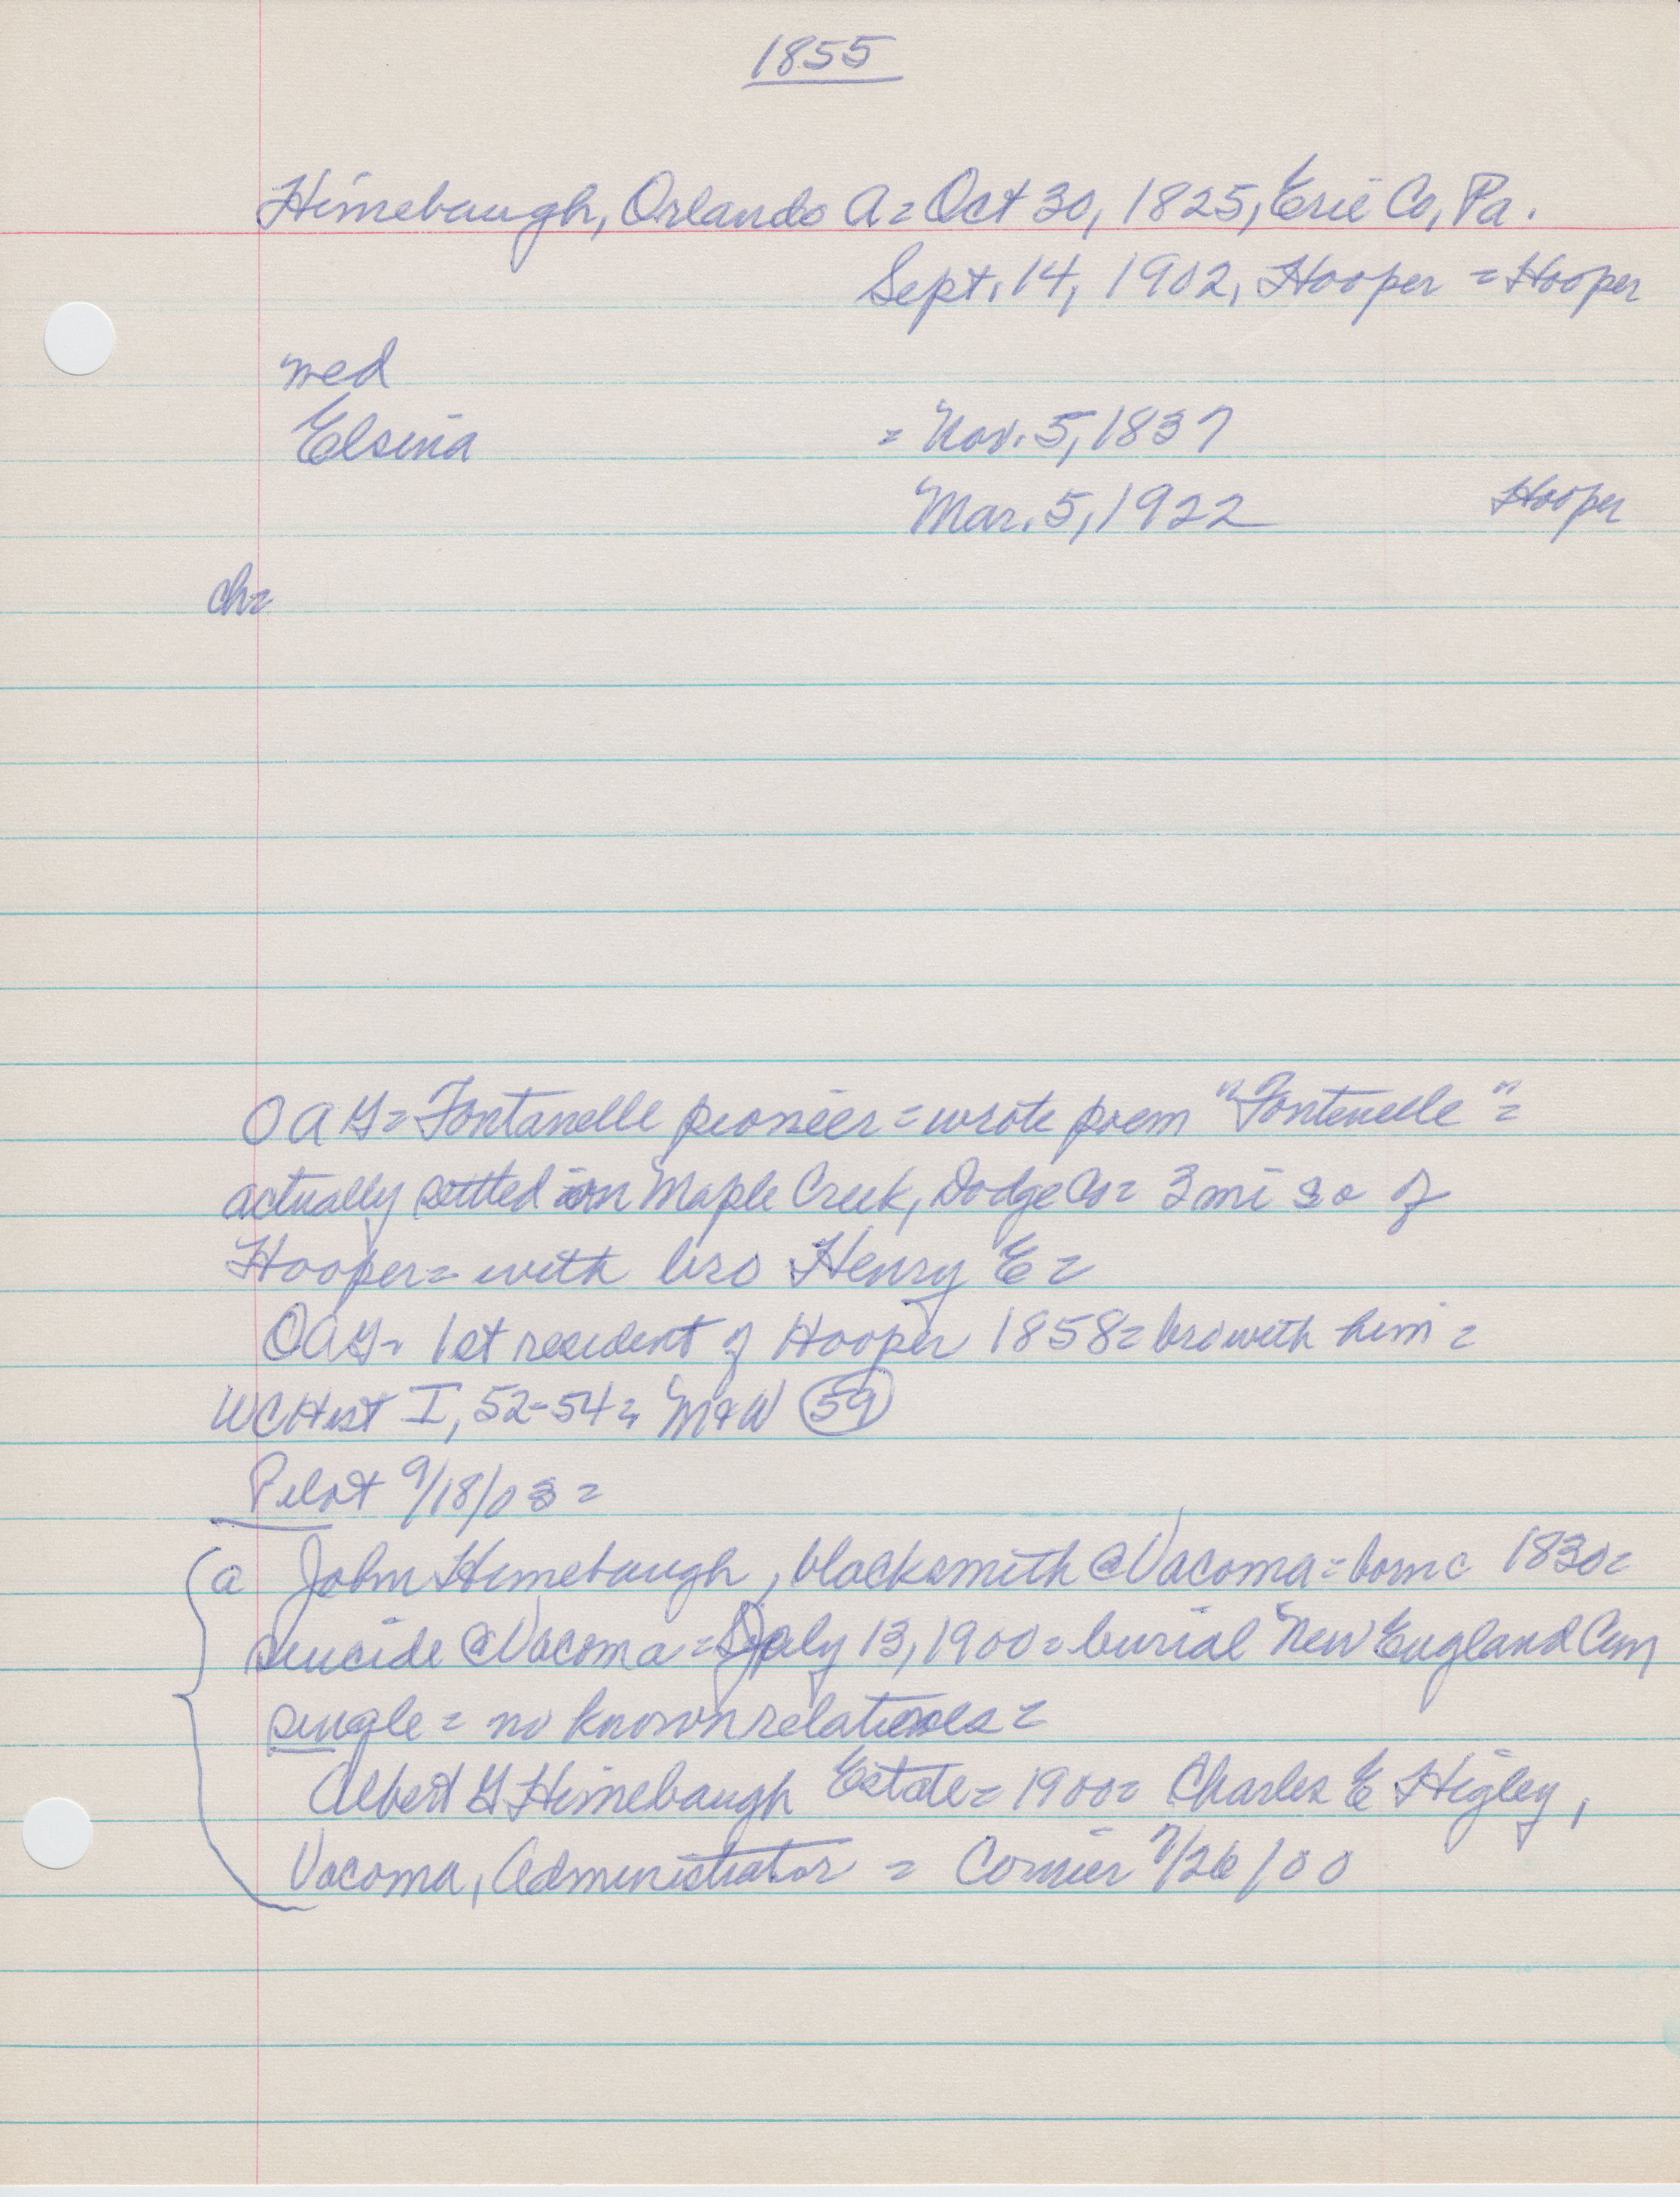 1855
Himebaugh, Orlando A = Oct 30, 1825, Erie Co, Pa.
Sept. 14, 1902, Hooper = Hooper
med
Elsina = Nov. 5, 1837
Mar. 5, 1922 Hooper
ch=
OAH = Fontanelle pioneer = wrote poem "Fontenelle" =
actually settled on Maple Creek, Dodge Co = 3 mi so of
Hooper = with bro Henry E =
OAH = 1st resident of Hooper 1858 = bro with him =
WCHist I, 52-54 = M&W 59
Pilot 9/18/03 =
a John Himebaugh, blacksmith @ Vacoma = born c 1830 =
suicide @ Vacoma = July 13, 1900 = burial New England Cem
single = no known relatives =
Albert G Himebaugh Estate = 1900 = Charles E Higley,
Vacoma, Administrator = Courier 7/26/00